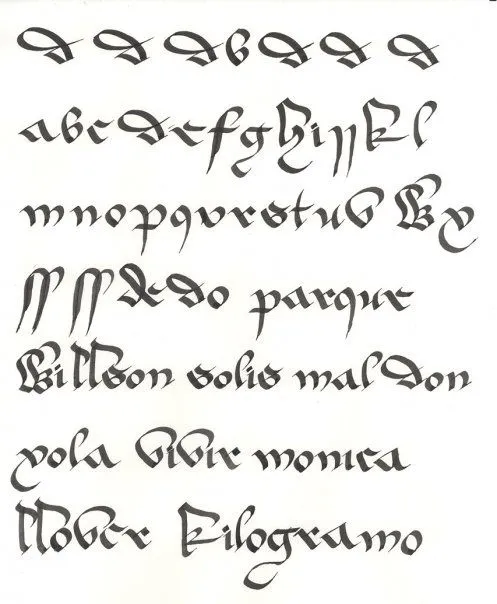 d d d v d d d
abcdefghijjkl
mnopqvrstuv W y
ſſ ſſ & do parque
Willson solis mal don
yola vivir monica
llover kilogramo